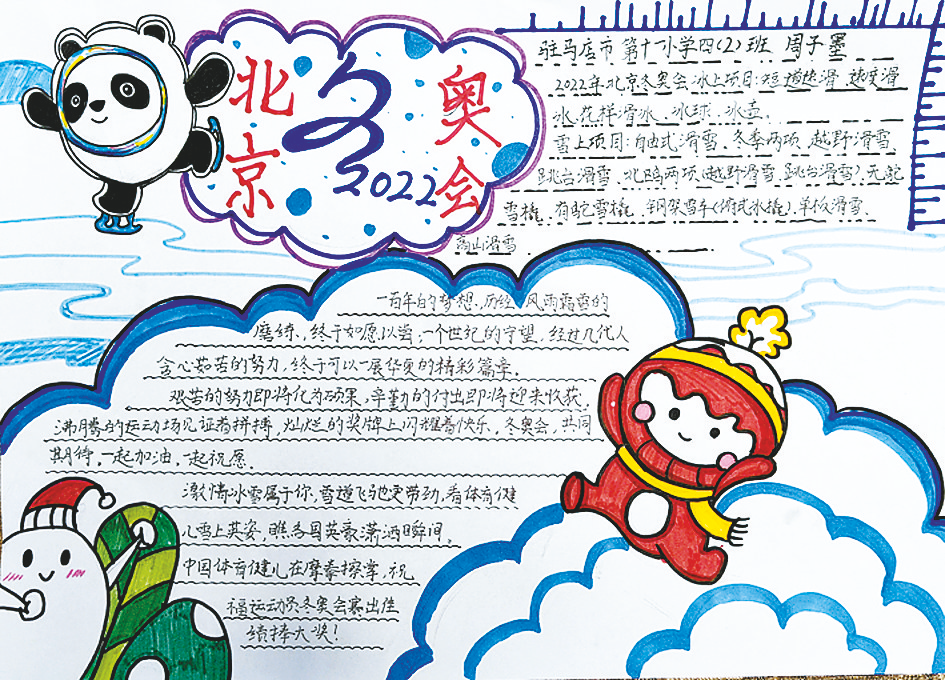 北京冬奥会
2022
驻马店市 第十一小学四(2)班 周子墨
2022年北京冬奥会冰上项目:短道速滑 速度滑
冰、花样滑冰、冰球、冰壶。
雪上项目:自由式滑雪、冬季两项、越野滑雪、
跳台滑雪、北欧两项(越野滑雪、跳台滑雪)、无舵
雪橇、有舵雪橇、钢架雪车(俯式冰橇)、单板滑雪、
高山滑雪
一百年的梦想、历经风雨霜雪的
磨练、终于如愿以尝,一个世纪的守望,经过几代人
含心茹苦的努力,终于可以一展华夏的精彩篇章。
艰苦的努力即将化为硕果,辛勤的付出即将迎来收获,
沸腾的运动场见证着拼搏,灿烂的奖牌上闪耀着快乐,冬奥会,共同
期待,一起加油,一起祝愿。
激情冰雪属于你,雪道飞驰更带劲,看体育健
儿雪上英姿,瞧各国英豪潇洒瞬间。
中国体育健儿在摩拳擦掌,祝
福运动员冬奥会赛出佳
绩捧大奖!